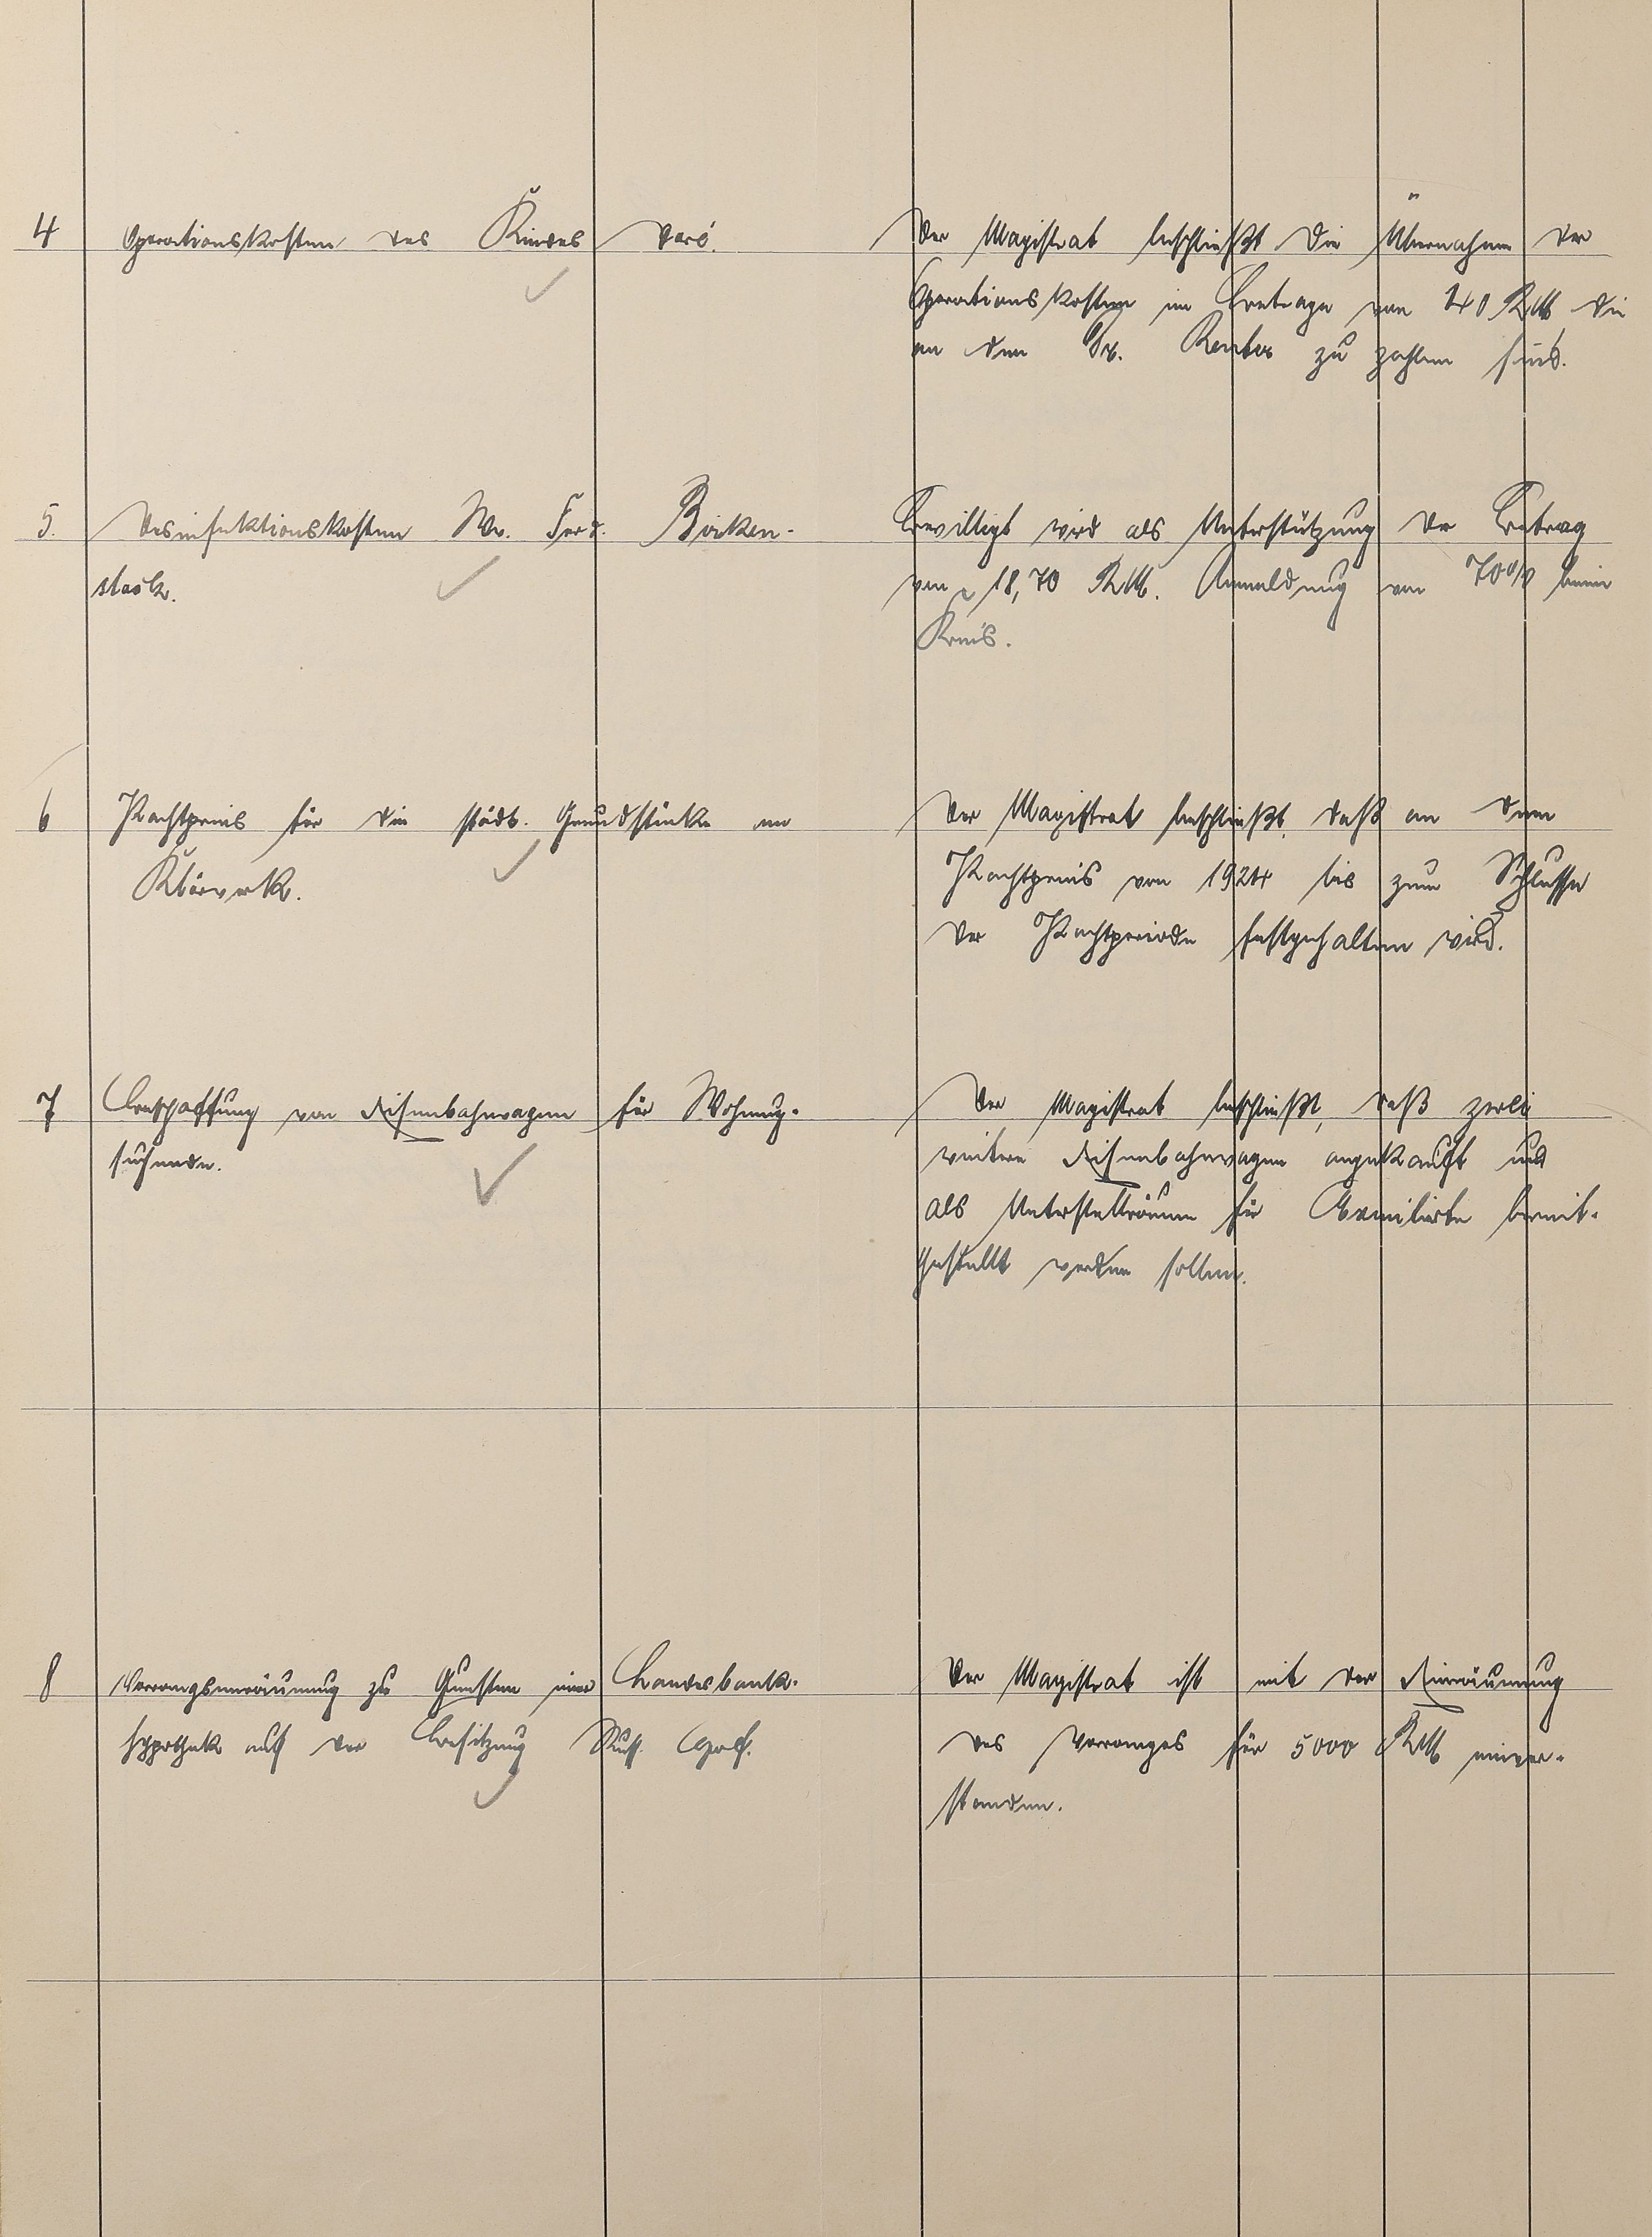 4 Operationskosten des Kindes Varó.
Der Magistrat beschließt die Übernahme der
Operationskosten im Betrage von 40 RM, die
an den Dr. zu zahlen sind.
5. Desinfektionskosten Ww. Ferd. Birken-
stock.
Bewilligt wird als Unterstützung der Betrag
von 18,70 RM. Anmeldung von 70% beim
Kreis.
6 Pachtpreis für die städt. Grundstücke am
Klärwerk.
Der Magistrat beschließt, daß an dem
Pachtpreis von 1924 bis zum Schlusse
der Pachtperiode festgehalten wird.
7 Beschaffung von Eisenbahnwagen für Wohnung-
suchende.
Der Magistrat beschließt, daß zwei
weitere Eisenbahnwagen angekauft und
als Unterstellräume für Exmitierte bereit-
gestellt werden sollen.
8 Vorrangseinräumung zu Gunsten einer Landesbank-
hypothek auf der Besitzung Graf.
Der Magistrat ist mit der Einräumung
des Vorranges für 5000 RM einver-
standen.